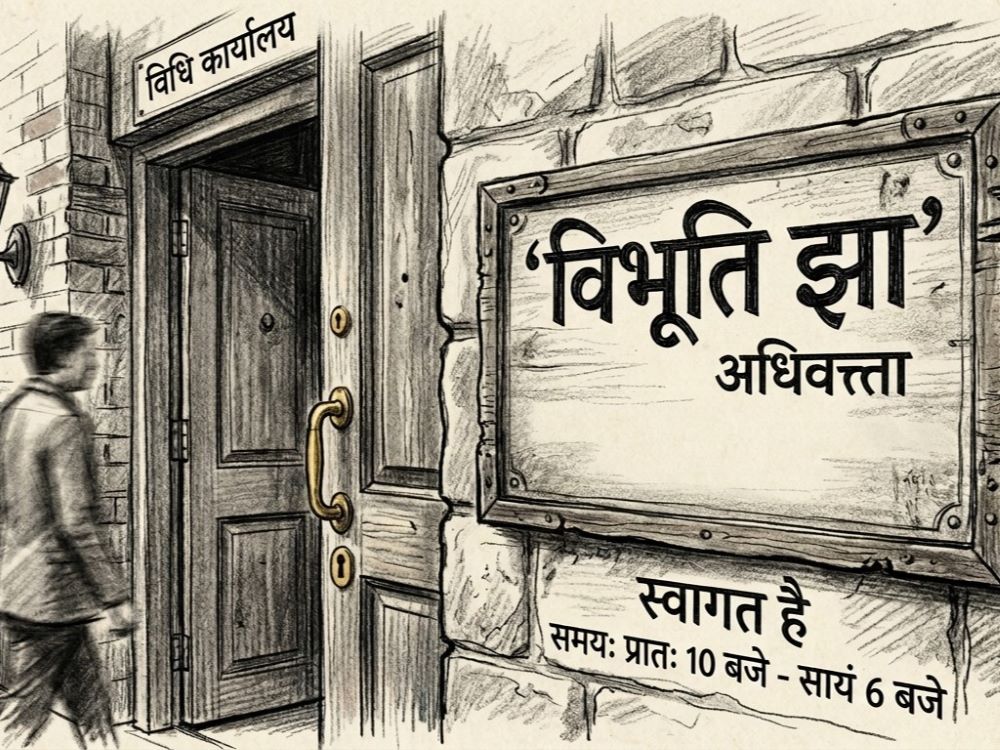 विधि कार्यालय
‘विभूति झा’
अधिवत्त्ता
स्वागत है
समयः प्रातः 10 बजे - सायं 6 बजे